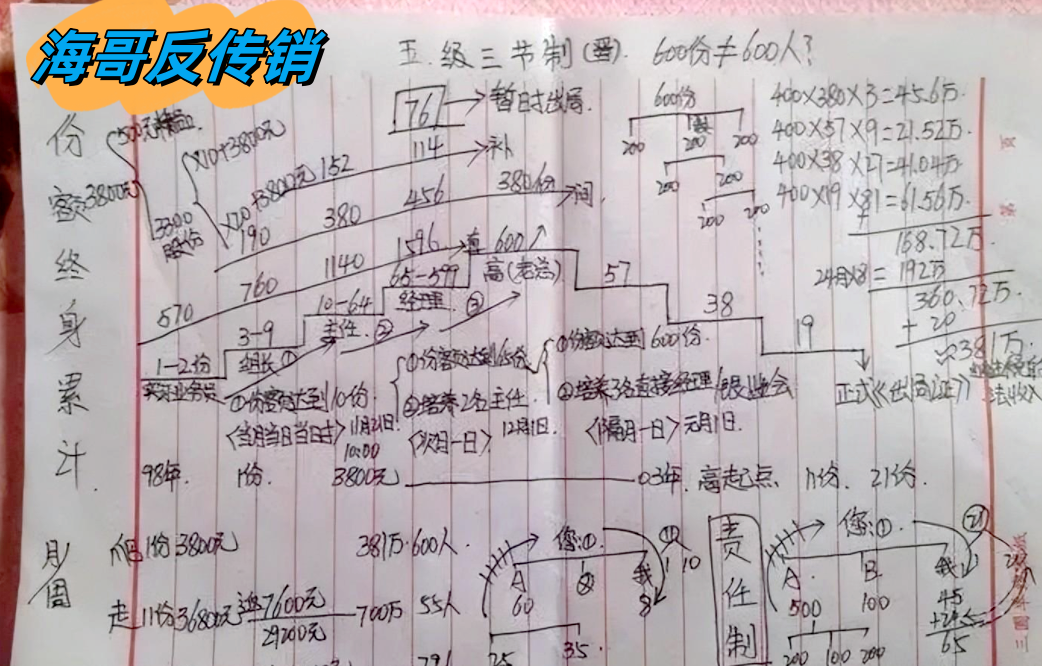 海哥反传销
五级三节制(晋). 600份≠600人?
份额终身累计
500元精品
3300股份
额3800元
×10+3800元
×20+3800元 152
761→暂时出局.
114 补
190 380 456 380份 间
570 760 1140 1596 直 600
600份
200 200 200
200 200
200 200
400×380×3=45.6万.
400×57×9=21.52万.
400×38×27=41.04万
400×19×81=61.56万.
168.72万.
24月×8=192万
360.72万.
+20
381万.
1-2份
实习业务员
3-9
组长①
10-64
主任②
65-599
经理③
高(老总)
57
38
19
①份额达到10份.
〈当月当日当时〉11月21日. 10:00
①份额达到65份.
②培养2名主任.
〈次月一日〉12月1日.
①份额达到600份.
②培养3名直接经理
〈隔月一日〉元月1日.
正式《出局证》
98年. 1份. 3800元 03年. 高起点. 11份. 21份.
月/周
爬 1份3800元 381万·600人.
走 11份36800元 7600元 700万 55人
29200元
您:①
A ② 我
60
25 35
10
责任制
您:①
A B 我
500 100 45
65
200 100 200
21